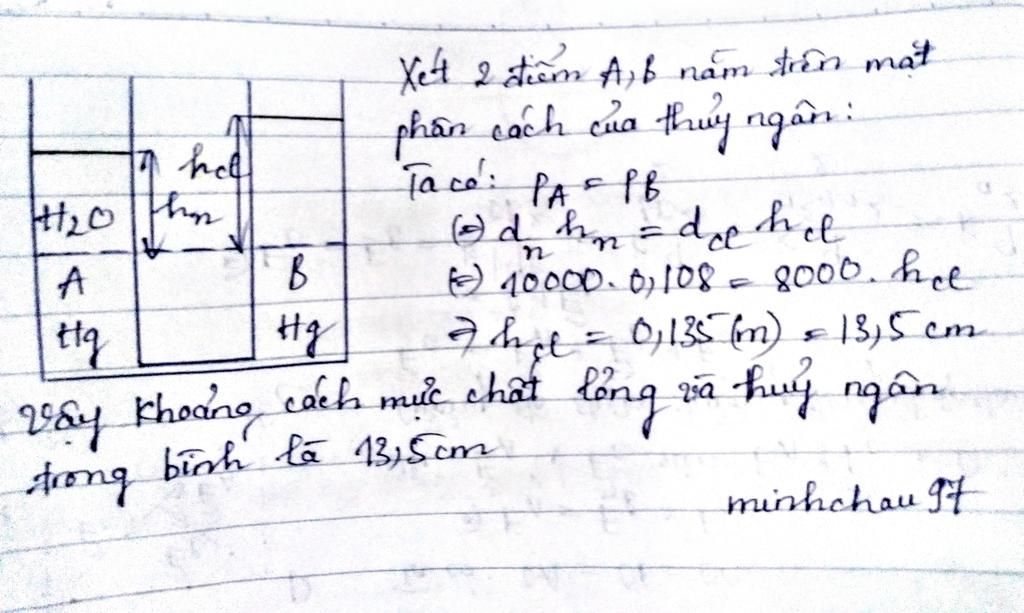 Xét 2 điểm A, B nằm trên mặt
phân cách của thuỷ ngân:
Ta có: PA = PB
(=) dn hn = dcl hcl
(=) 10000. 0,108 = 8000. hcl
=> hcl = 0,135 (m) = 13,5 cm
hcl
H2O hn
A B
Hg Hg
Vậy khoảng cách mực chất lỏng và thuỷ ngân
trong bình là 13,5cm
minhchau 97